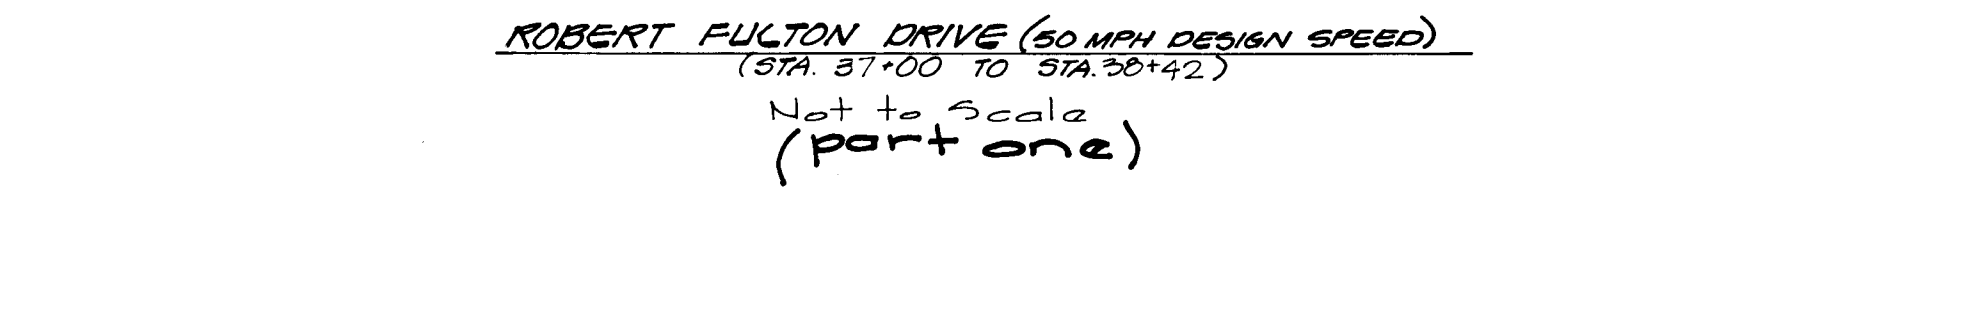 ROBERT FULTON DRIVE (50 MPH DESIGN SPEED)
(STA. 37+00 TO STA. 38+42)
Not to Scale
(part one)